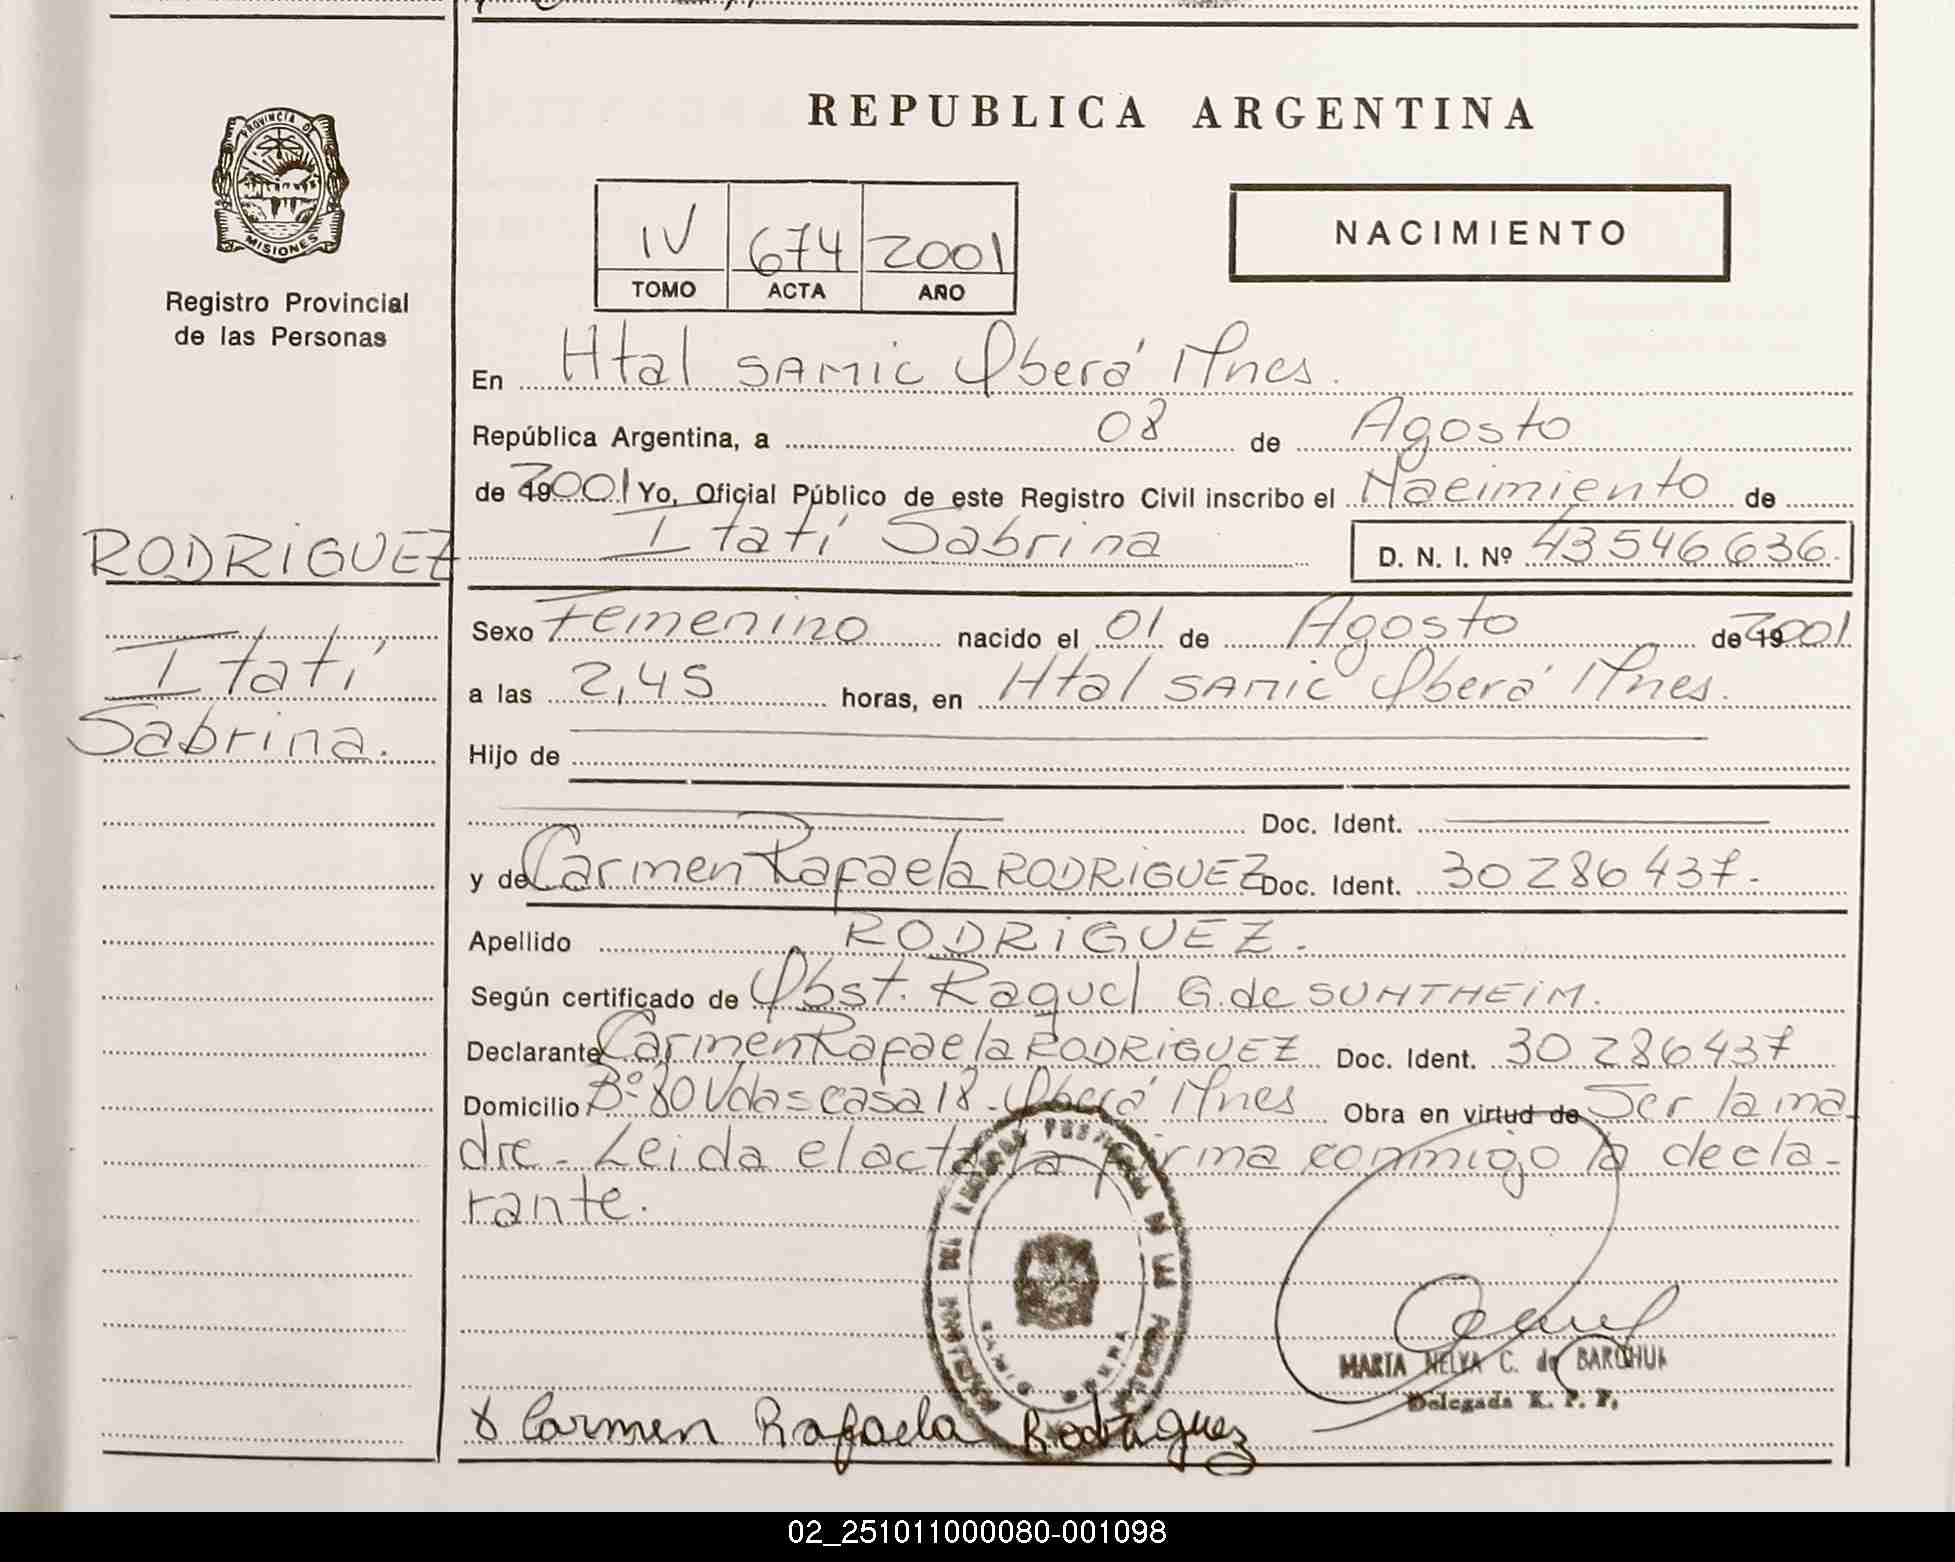 REPUBLICA ARGENTINA
PROVINCIA DE
MISIONES
Registro Provincial
de las Personas
IV 674 2001
TOMO ACTA AÑO
NACIMIENTO
En Htal SAMIC Oberá Mnes.
República Argentina, a 08 de Agosto
de 19 2001 Yo, Oficial Público de este Registro Civil inscribo el Nacimiento de
Itatí Sabrina D. N. I. Nº 43546636.
RODRIGUEZ
Itatí
Sabrina.
Sexo Femenino nacido el 01 de Agosto de 19 2001
a las 2,45 horas, en Htal SAMIC Oberá Mnes.
Hijo de
Doc. Ident.
y de Carmen Rafaela RODRIGUEZ Doc. Ident. 30286437.
Apellido RODRIGUEZ.
Según certificado de Obst. Raquel G. de SUHTHEIM.
Declarante Carmen Rafaela RODRIGUEZ Doc. Ident. 30286437
Domicilio Bº 80 Vdas casa 18. Oberá Mnes Obra en virtud de Ser la ma
dre. Leida el acta la firma conmigo la decla-
rante.
MARTA NELYA C. de
Delegada R. P. P.
x Carmen Rafaela Rodriguez
02_251011000080-001098